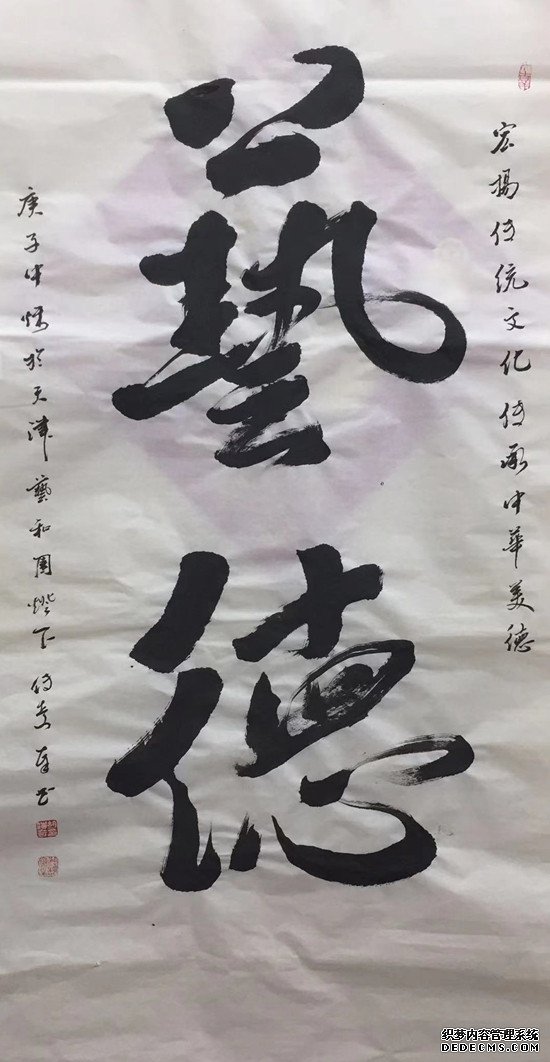 宏揚传统文化传承中华美德
藝德
庚子中秋於天津藝和園燈下
织梦内容管理系统
DEDECMS.COM